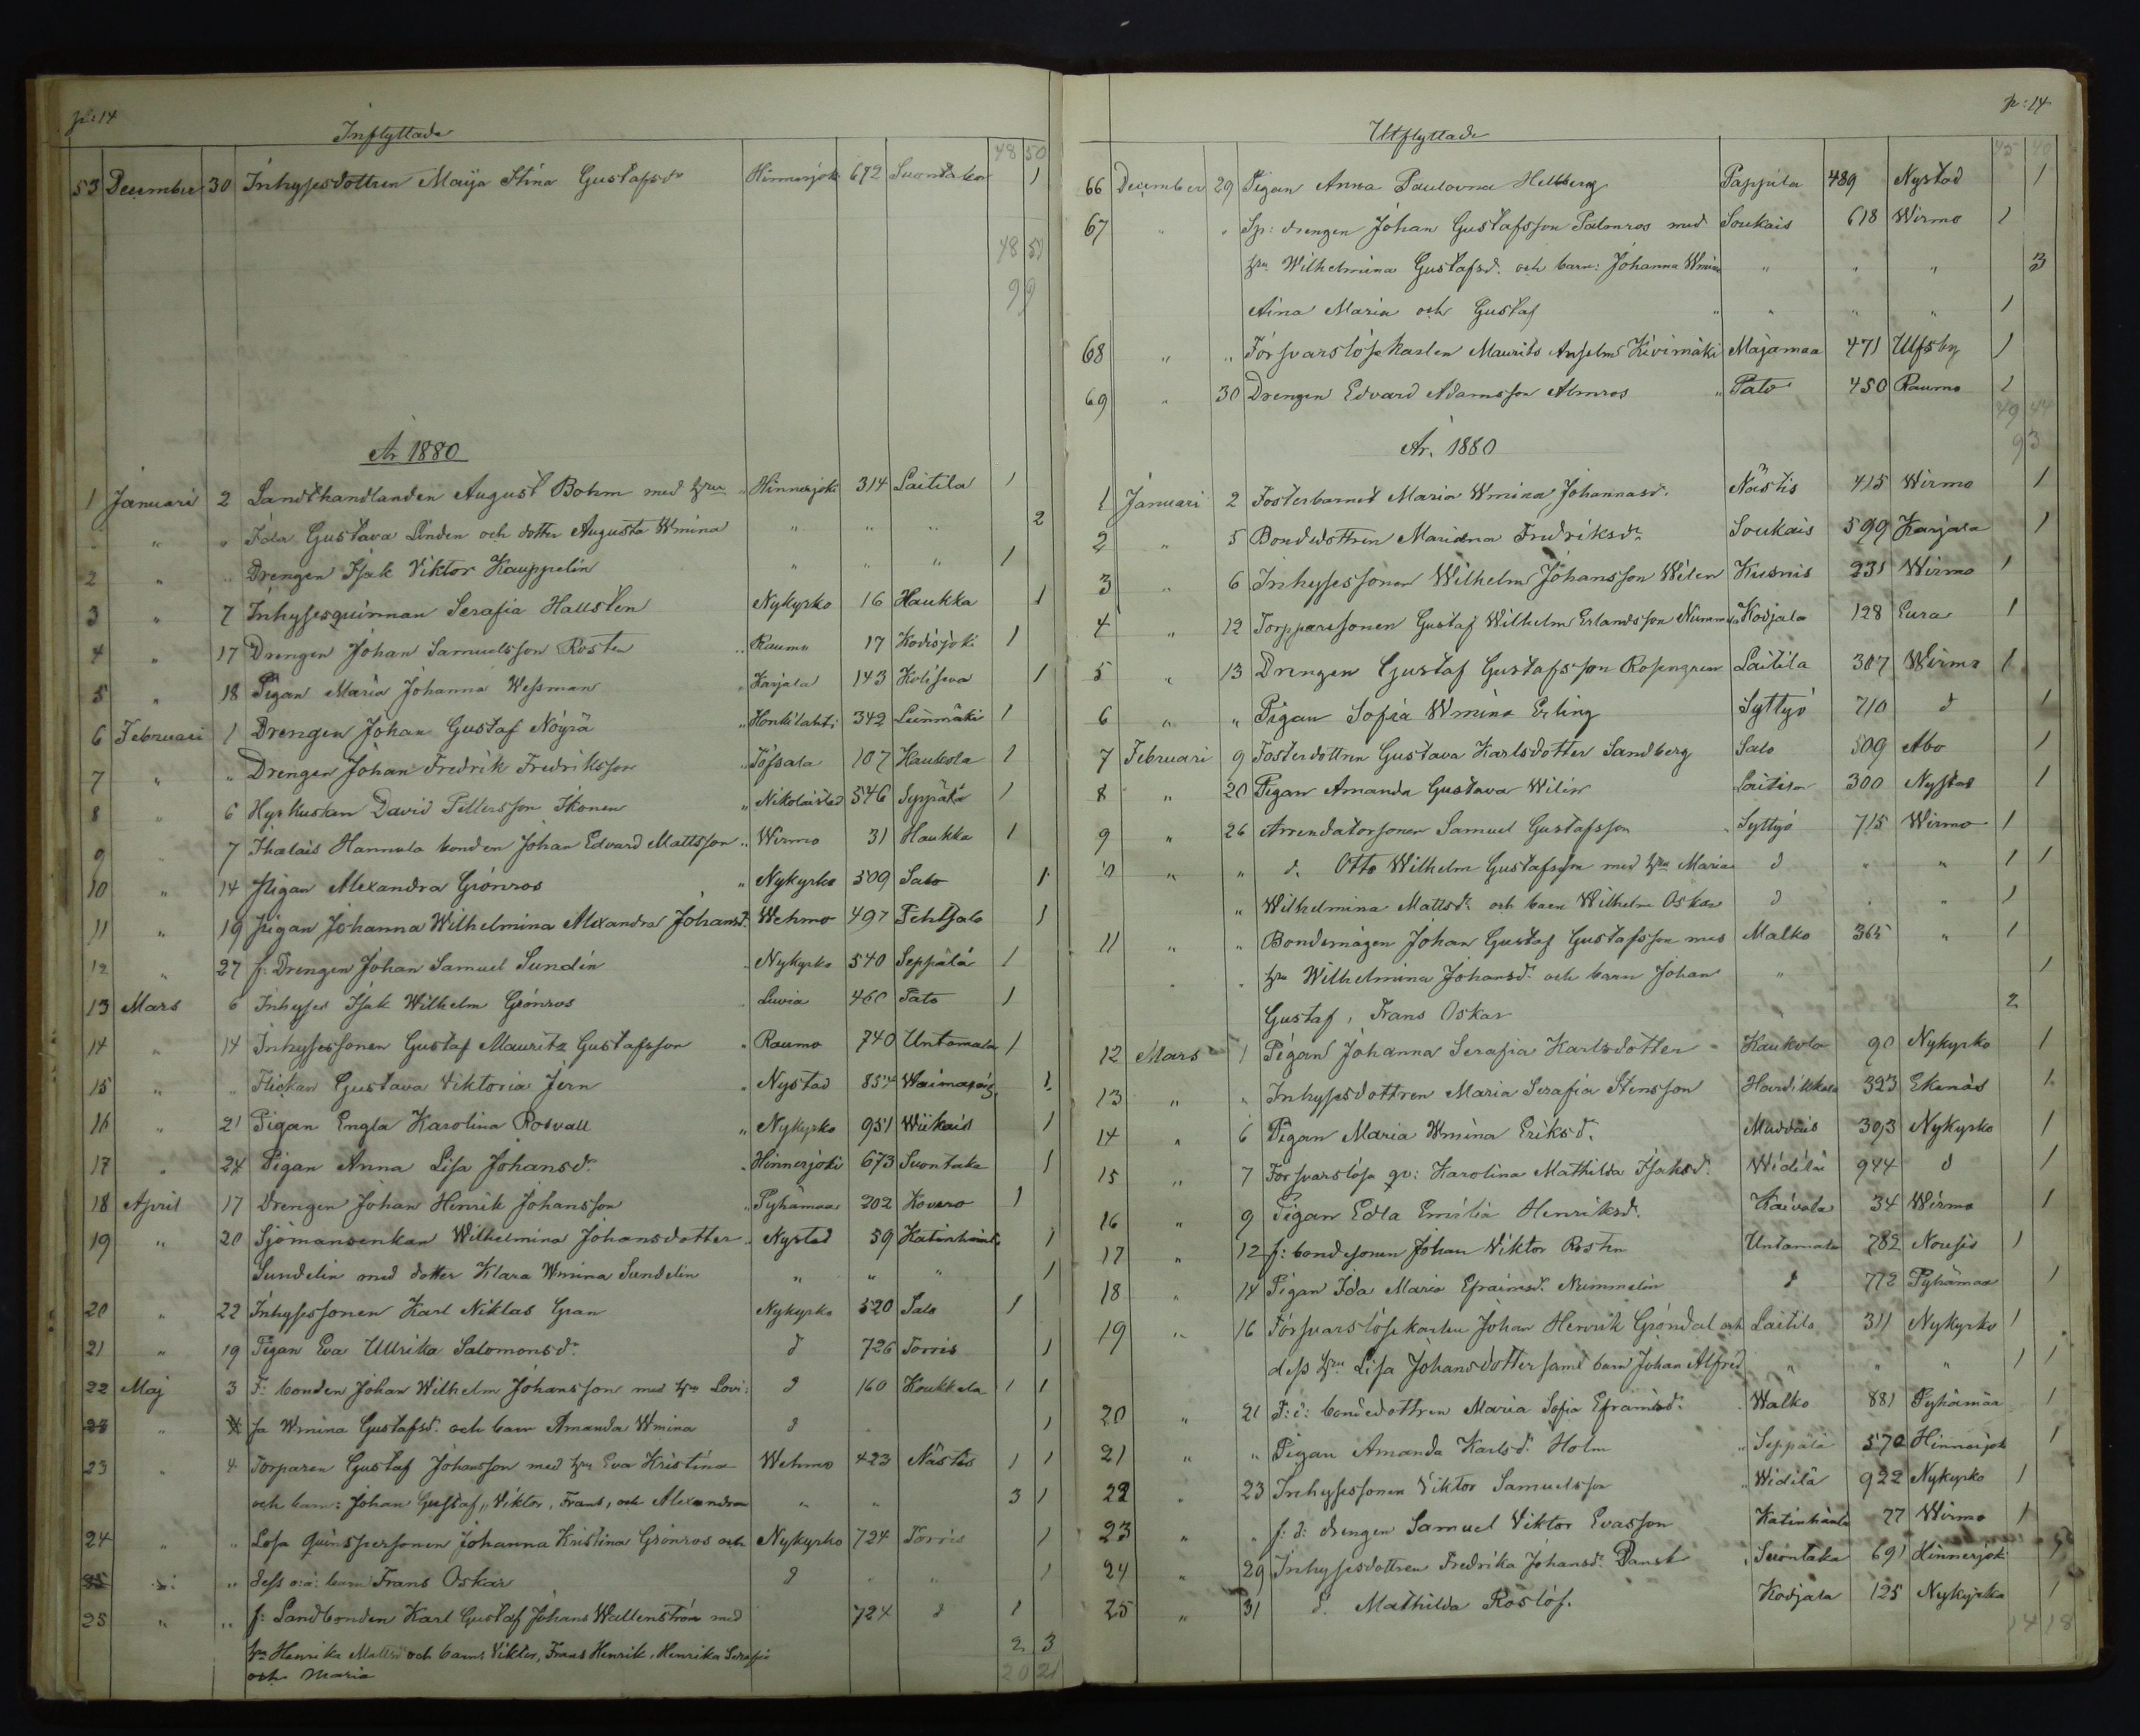 p: 14
Inflyttade
48 50
53 December 30 Inhysesdottren Maija Stina Gustafsdr Hinnerjoki 672 Suontaka 1
48 51
99
År 1880
1 Januari 2 Landthandlanden August Bohm med hru " Hinnerjoki 314 Laitila 1
" " Gustava Linden och dotter Augusta Wmina " " " 2
2 " " Drengen Isak Viktor Kauppelin " " " 1
3 " 7 Inhysesqvinnan Serafia Hallsten Nykyrko 16 Haukka 1
4 " 17 Drengen Johan Samuelsson Rosten " Raumo 17 Kodisjoki 1
5 " 18 Pigan Maria Johanna Wessman " Karjala 143 Koliseva 1
6 Februari 1 Drengen Johan Gustaf Nöyrä " Honkilahti 342 Leinmäki 1
7 " " Drengen Johan Fredrik Fredriksson " Töfsala 107 Kaukola 1
8 " 6 Hyrkusken David Pettersson Ikonen " Nikolaistad 546 Seppälä 1
9 " 7 Ihalais Hannula bonden Johan Edvard Mattsson " Wirmo 31 Haukka 1
10 " 14 Pigan Alexandra Grönroos " Nykyrko 509 Salo 1
11 " 19 Pigan Johanna Wilhelmina Alexandra Johansd. Wehmo 497 1
12 " 27 f: Drengen Johan Samuel Sundén " Nykyrko 540 Seppälä 1
13 Mars 6 Inhyses Isak Wilhelm Grönros Luvia 460 Pato 1
14 " 14 Inhysessonen Gustaf Mauritz Gustafsson " Raumo 740 Untamala 1
15 " " Flickan Gustava Viktoria Jern " Nystad 854 1
16 " 21 Pigan Engla Karolina Rosvall " Nykyrko 951 Wiikais 1
17 " 24 Pigan Anna Lisa Johansdr " Hinnerjoki 673 Suontaka 1
18 April 17 Drengen Johan Henrik Johansson " Pyhämaa 202 Kovero 1
19 " 20 Sjömansenkan Wilhelmina Johansdotter " Nystad 59 Katinhänt 1
Sundelin med dotter Klara Wmina Sundelin " " " 1
20 " 22 Inhysessonen Karl Niklas Gran Nykyrko 520 Salo 1
21 " 19 Pigan Eva Ullrika Salomonsdr d 726 Torris 1
22 Maj 3 F: bonden Johan Wilhelm Johansson med hru Lovi: d 160 Koukkela 1 1
23 " sa Wmina Gustafsd. och barn Amanda Wmina d " 1
23 " 4 Torparen Gustaf Johansson med hru Eva Kristina Wehmo 423 Nästis 1 1
och barn: Johan Gustaf, Viktor, Frans, och Alexandra " " 3 1
24 " " Lösa qvinspersonen Johanna Kristina Grönros och Nykyrko 724 Torris 1
25 " " dess o:ä: barn Frans Oskar d " " 1
25 " " f: Landbonden Karl Gustaf Johans Wallenström med 724 d 1
hru Henrika Mattsdr och barn: Viktor, Frans Henrik, Henrika Serafia 2 3
och Maria 20 21
p: 14
Utflyttade
45 40
66 December 29 Pigan Anna Paulovna Hellberg Pappila 489 Nystad 1
67 " " Sp: drengen Johan Gustafsson Palonros med Soukais 618 Wirmo 1
hru Wilhelmina Gustafsd. och barn: Johanna Wmina " " " 3
Aina Maria och Gustaf " " " " 1
68 " " Försvarslösekarlen Maurits Anselm Kivimäki Majamaa 471 Ulfsby 1
69 " 30 Drengen Edvard Adamsson Almros " Pato 450 Raumo 1
49 44
93
År. 1880
1 Januari 2 Fosterbarnet Maria Wmina Johannasd. Nästis 415 Wirmo 1
2 " 5 Bondedottren Mariana Fredriksdr Soukais 599 Karjala 1
3 " 6 Inhysessonen Wilhelm Johansson Wilen Kusnis 231 Wirmo 1
4 " 12 Torpparesonen Gustaf Wilhelm Erlandsson Kodjala 128 Eura 1
5 " 13 Drengen Gustaf Gustafsson Rosengren Laitila 307 Wirmo 1
6 " " Pigan Sofia Wmina Erling Syttyö 710 d 1
7 Februari 9 Fosterdottren Gustava Karlsdotter Sandberg Salo 509 Åbo 1
8 " 20 Pigan Amanda Gustava Wilén Laitila 300 Nystad 1
9 " 26 Arrendatorsonen Samuel Gustafsson " Syttyö 715 Wirmo 1
10 " " d. Otto Wilhelm Gustafsson med hru Maria d " " 1 1
" Wilhelmina Mattsdr och barn Wilhelm Oskar d " " 1
11 " " Bondemågen Johan Gustaf Gustafsson med Malko 365 " 1
" " hru Wilhelmina Johansdr och barn Johan " 1
Gustaf, Frans Oskar " 2
12 Mars 1 Pigan Johanna Serafia Karlsdotter Kaukola 90 Nykyrko 1
13 " " Inhysesdottren Maria Serafia Stensson 323 Ekenäs 1
14 " 6 Pigan Maria Wmina Eriksd. Mudais 393 Nykyrko 1
15 " 7 Försvarslösa qv: Karolina Mathilda Isaksd. Widilä 944 d 1
16 " 9 Pigan Edla Emilia Henriksd. Kaivola 34 Wirmo 1
17 " 12 f: bondesonen Johan Viktor Rostén Untamala 782 Nousis 1
18 " 14 Pigan Ida Maria Efraimsd. Nummelin d 772 Pyhämaa 1
19 " 16 Försvarslösekarlen Johan Henrik Gröndal och Laitila 311 Nykyrko 1
dess hru Lisa Johansdotter samt barn Johan Alfred " " " 1 1
20 " 21 F: d: bondedottren Maria Sofia Efraimsd. Walko 881 Pyhämaa 1
21 " " Pigan Amanda Karlsd. Holm " Seppälä 570 Hinnerjoki 1
22 " 23 Inhysessonen Viktor Samuelsson " Widilä 922 Nykyrko 1
23 " " f: d: drengen Samuel Viktor Evasson Katinhänta 77 Wirmo 1
24 " 29 Inhysesdottren Fredrika Johansdr Dansk " Suontaka 691 Hinnerjoki 1
25 " 31 d. Mathilda Roslöf. Kodjala 125 Nykyrka 1
14 18